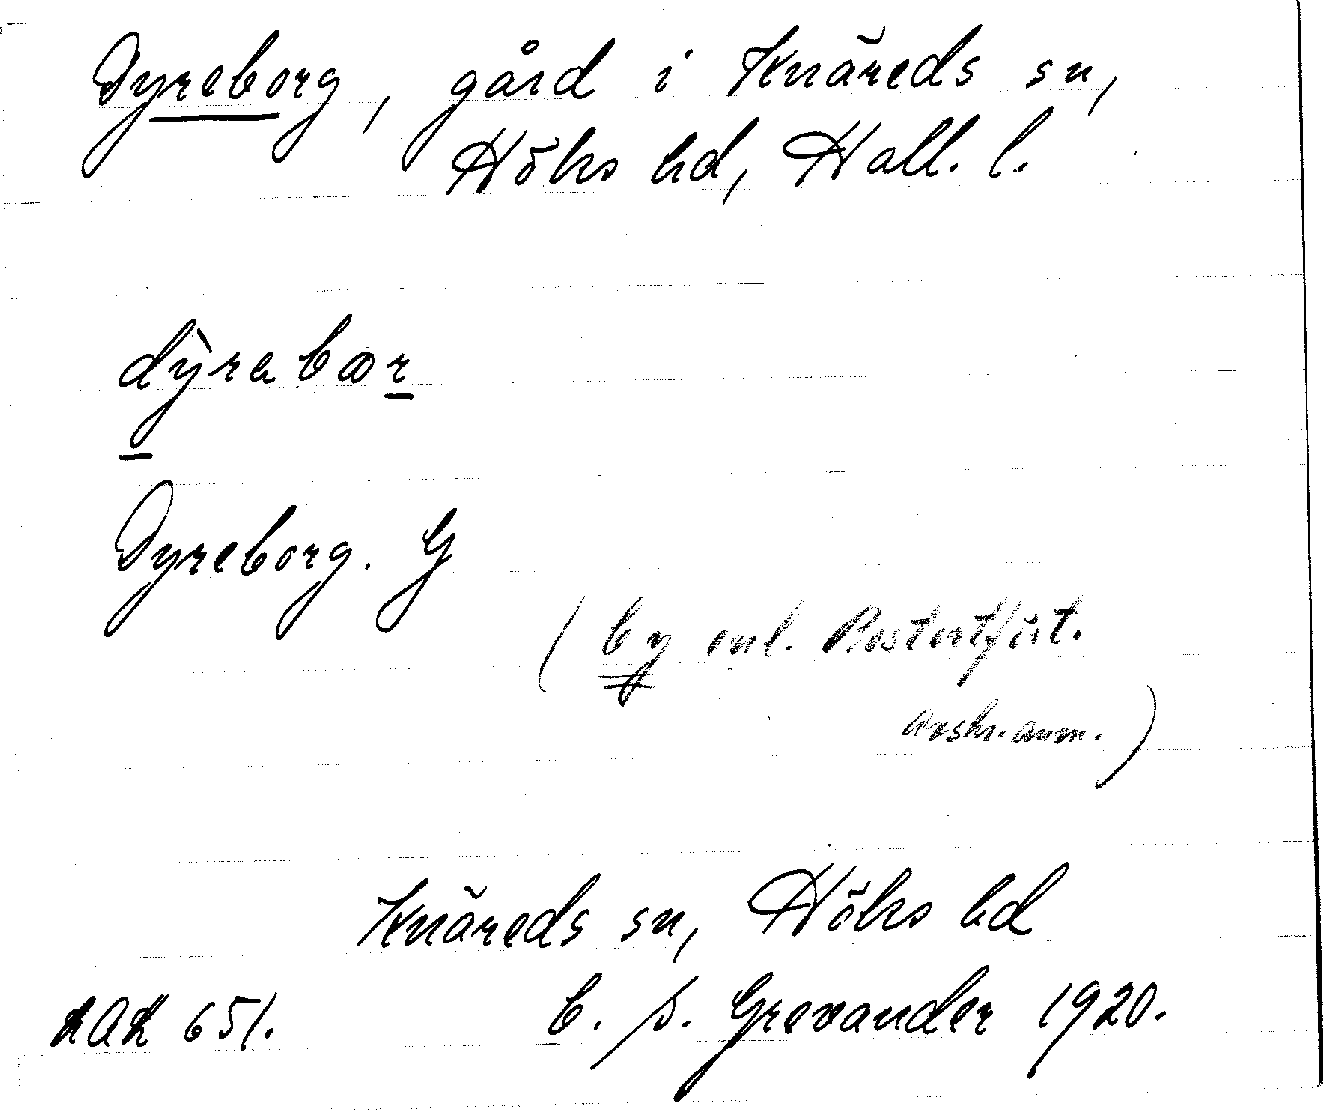 Dyreborg, gård i Knäreds sn,
Höks hd, Hall. l.
dỳrabær
Dyreborg. G
(by enl.
avskr. anm.)
Knäreds sn, Höks hd
LAL 651. C. S. Grevander 1920.